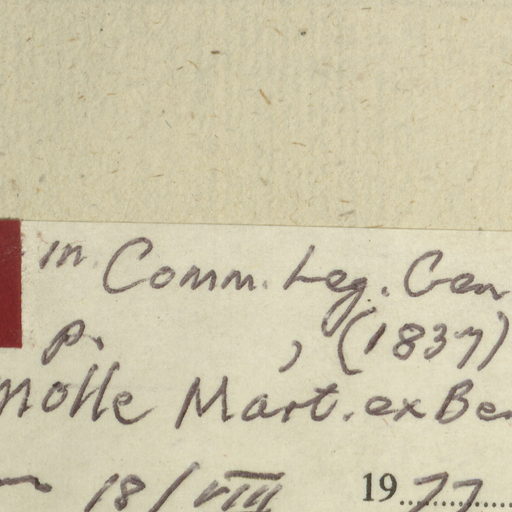 in Comm. Leg. Gen
p. , (1837)
molle Mart. ex Be
18/VIII 1977